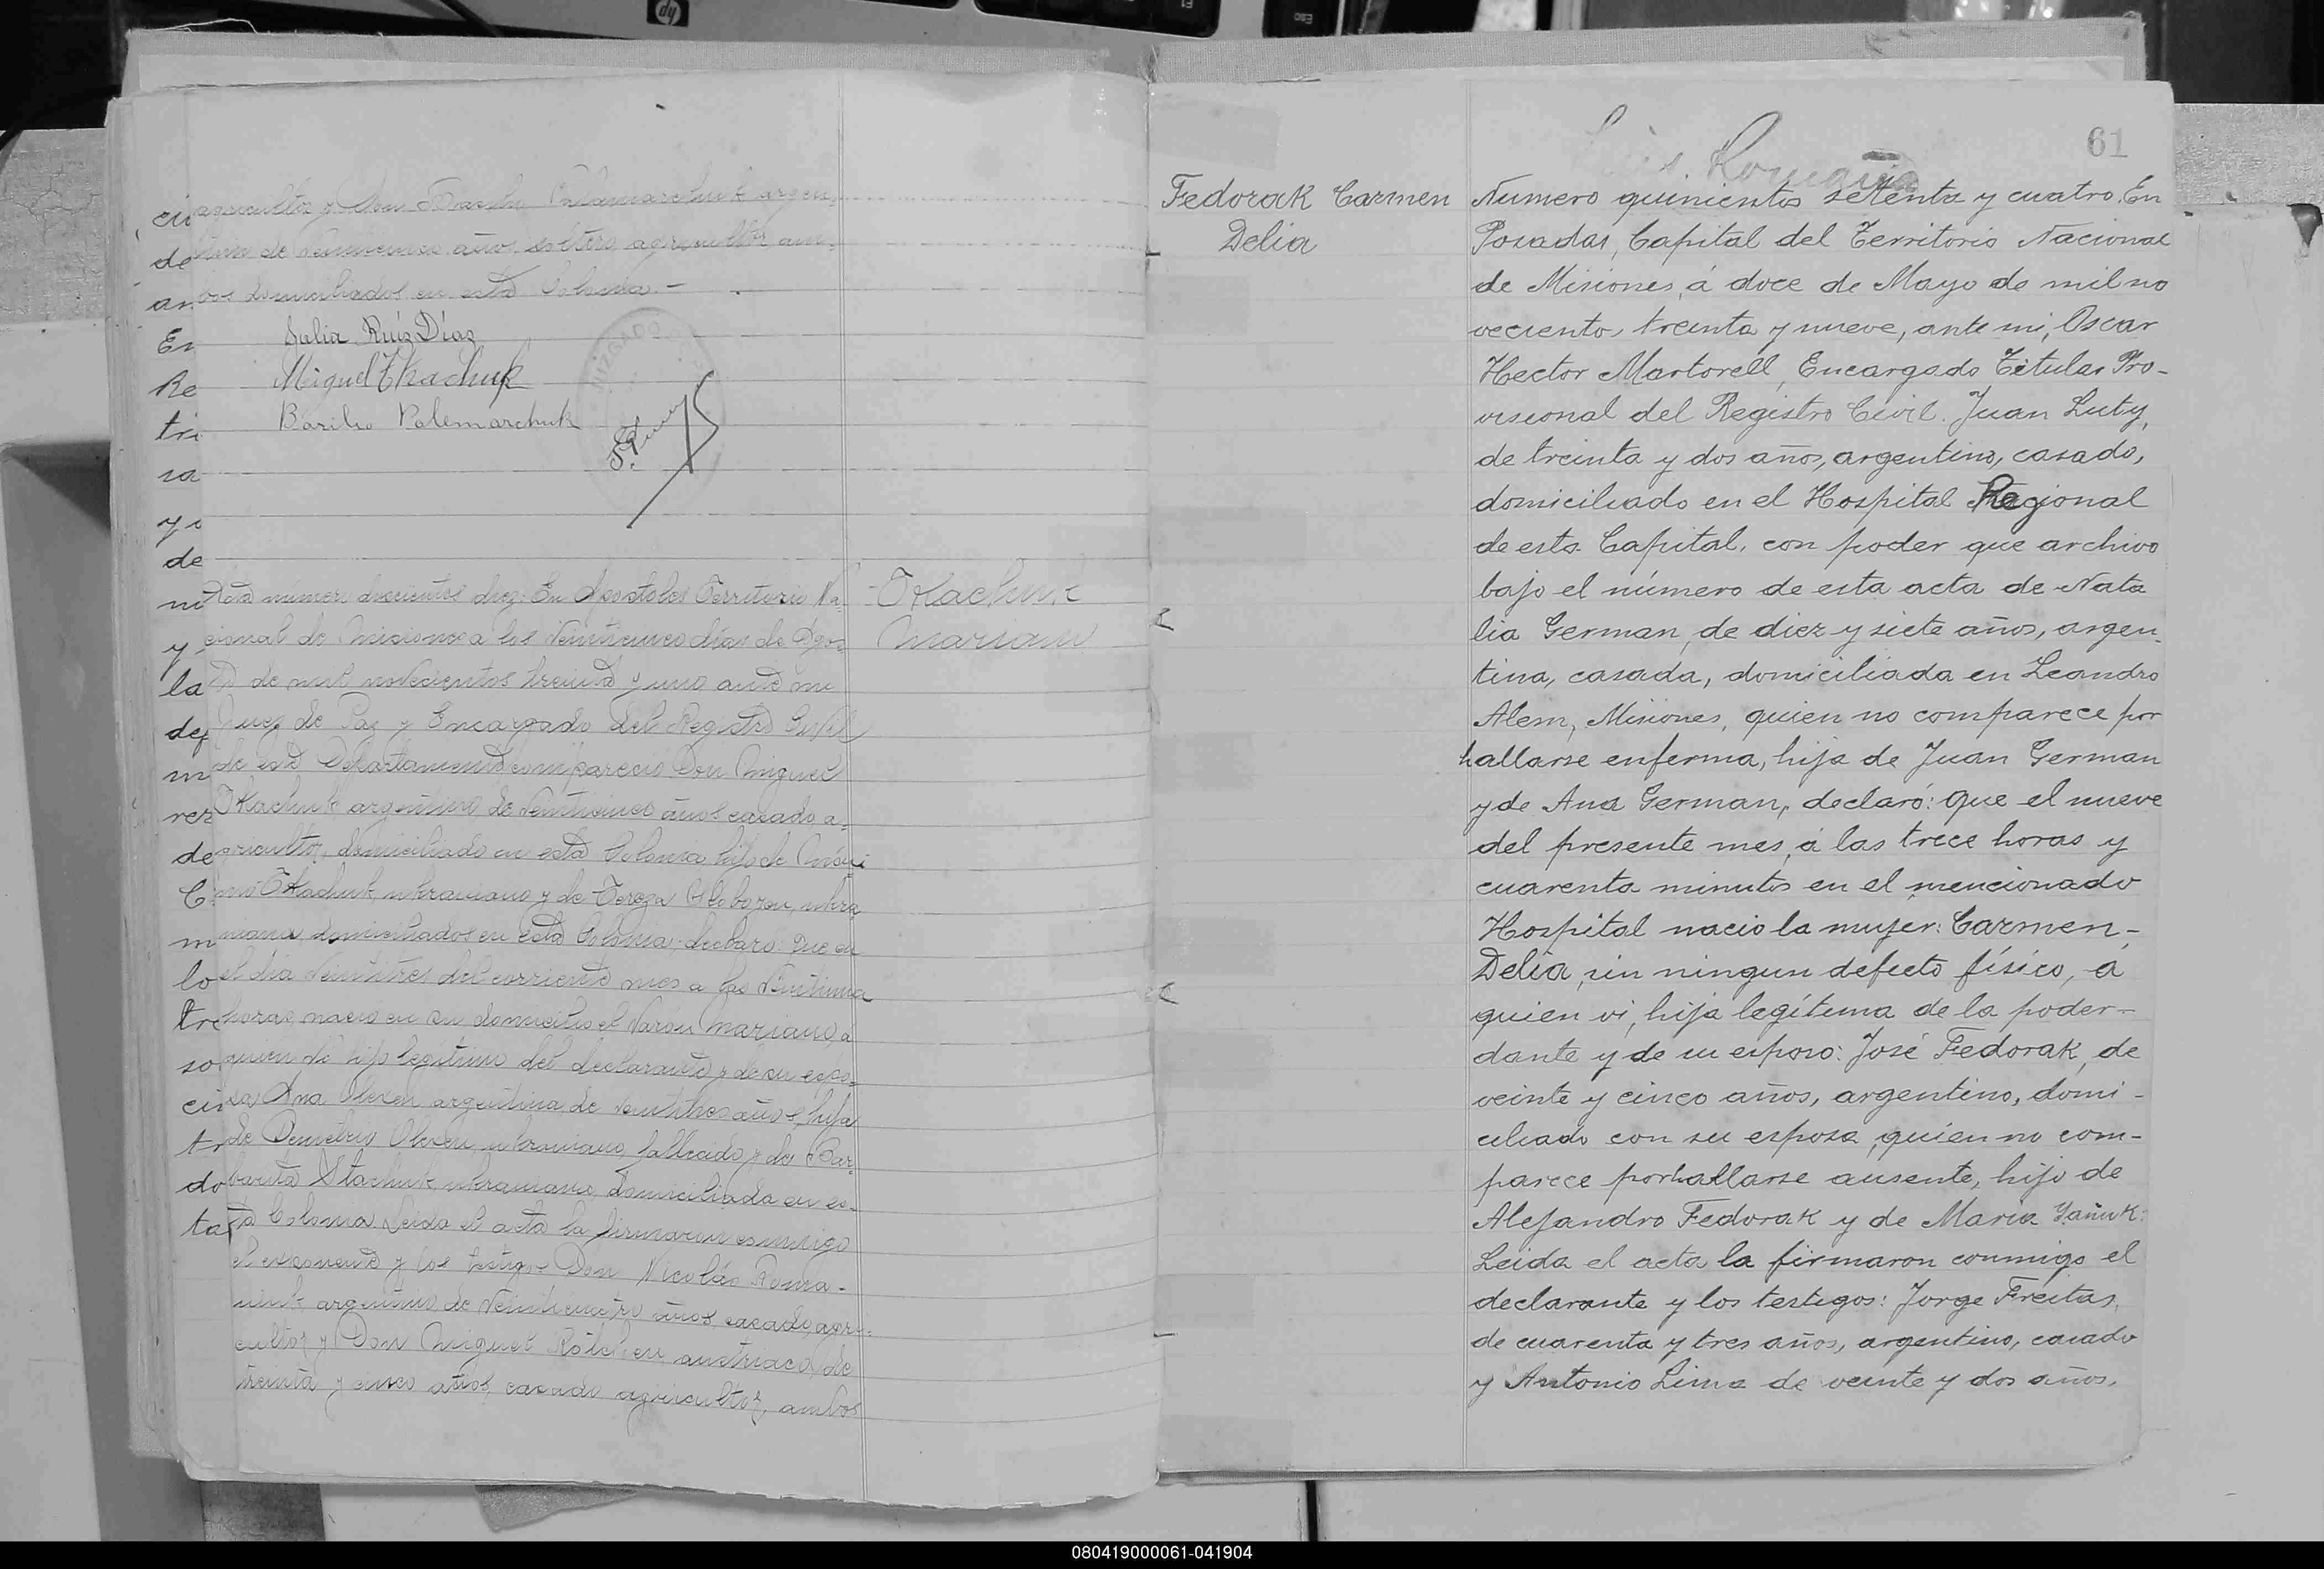 agricultor y Don Basilio Palamarchuk argen
tino de veinticinco años soltero agricultor am-
bos domiciliados en esta Colonia.-
Julia Ruíz Díaz
Miguel Tkachuk
Basilio Palemarchuk
JUZGADO
cu
de
an
En
Re
tri
sa
y
de
ni
y
la
def
m
rez
de
C
m
lo
tre
so
cu
tr
do
ta
Acta número doscientos diez: En Apóstoles Territorio Na-
cional de Misiones a los veinticinco días de Agos
to de mil novecientos treinta y uno ante mi
Juez de Paz y Encargado del Registro Civil
de este Departamento compareció Don Miguel
Tkachuk argentino de veinticinco años casado a-
gricultor, domiciliado en esta Colonia hijo de
Tkachuk, ukraniano y de Tereza ukra
niana, domiciliados en esta Colonia, declaró: Que en
el día veintitres del corriente mes a las veintiuna
horas nació en su domicilio el varón Mariano, a
quien vi hijo legítimo del declarante y de su espo-
sa Ana Olexen argentina de veintitres años, hija
de Demetrio Olexen ukraniano, fallecido y de Bar-
Stachuk ukraniana, domiciliada en es-
ta Colonia. Leida el acta la firmaron conmigo
el exponente y los testigos Don Nicolás Roma-
niuk argentino de veinticuatro años, casado, agri-
cultor y Don Miguel austriaco, de
treinta y cinco años, casado agricultor, ambos
Tkachuk
Mariano
61
Fedorak Carmen
Delia
Numero quinientos setenta y cuatro. En
Posadas, Capital del Territorio Nacional
de Misiones, á doce de Mayo de mil no
vecientos treinta y nueve, ante mi, Oscar
Hector Martorell, Encargado Titular Pro-
visional del Registro Civil. Juan Luty,
de treinta y dos años, argentino, casado,
domiciliado en el Hospital Regional
de esta Capital, con poder que archivo
bajo el número de esta acta de Nata
lia German, de diez y siete años, argen-
tina, casada, domiciliada en Leandro
Alem, Misiones, quien no comparece por
hallarse enferma, hija de Juan German
y de Ana German, declaró: que el nueve
del presente mes, á las trece horas y
cuarenta minutos en el mencionado
Hospital nacio la mujer: Carmen-
Delia, sin ningun defecto físico, á
quien vi, hija legítima de la poder-
dante y de su esposo: José Fedorak, de
veinte y cinco años, argentino, domi-
ciliado con su esposa, quien no com-
parece por hallarse ausente, hijo de
Alejandro Fedorak y de Maria Yañuk:
Leida el acta la firmaron conmigo el
declarante y los testigos: Jorge Freitas,
de cuarenta y tres años, argentino, casado
y Antonio Lima de veinte y dos años,
080419000061-041904